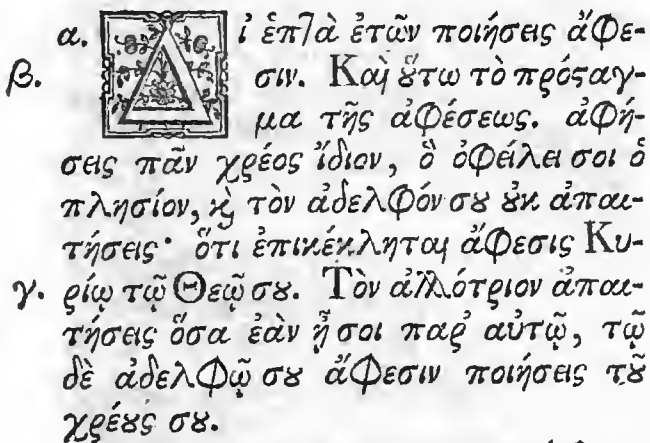 α. Δἰ ἑπτὰ ἐτῶν ποιήσεις ἄφε-
β. σιν. Καὶ οὕτω τὸ πρόσταγ-
μα τῆς ἀφέσεως. ἀφή-
σεις πᾶν χρέος ἴδιον, ὃ ὀφείλει σοι ὁ
πλησίον, ϗ̀ τὸν ἀδελφόν σου οὐκ ἀπαι-
τήσεις· ὅτι ἐπικέκληται ἄφεσις Κυ-
γ. ρίῳ τῷ Θεῷ σου. Τὸν ἀλλότριον ἀπαι-
τήσεις ὅσα ἐὰν ᾖ σοι παρ᾽ αὐτῷ, τῷ
δὲ ἀδελφῷ σου ἄφεσιν ποιήσεις τοῦ
χρέους σου.